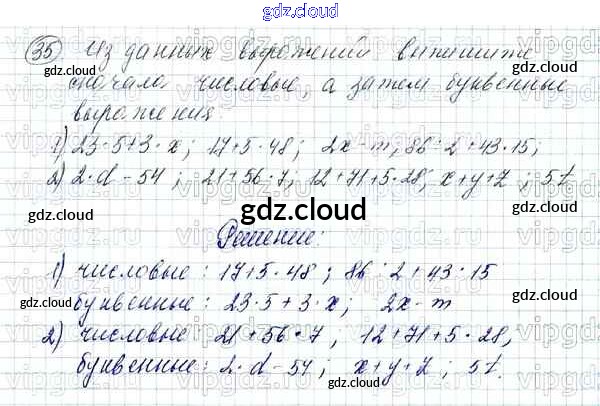 gdz.cloud
35) Из данных выражений выпишите
сначала числовые, а затем буквенные
выражения:
1) 23·5+3·x; 17+5·48; 2x-m; 86:2+43·15;
2) 2·d-54; 21+56·7; 12+71+5·28; x+y+z; 5t.
gdz.cloud
Решение:
1) числовые: 17+5·48; 86:2+43·15
буквенные: 23·5+3·x; 2x-m
2) числовые: 21+56·7; 12+71+5·28,
буквенные: 2·d-54; x+y+z; 5t.
gdz.cloud